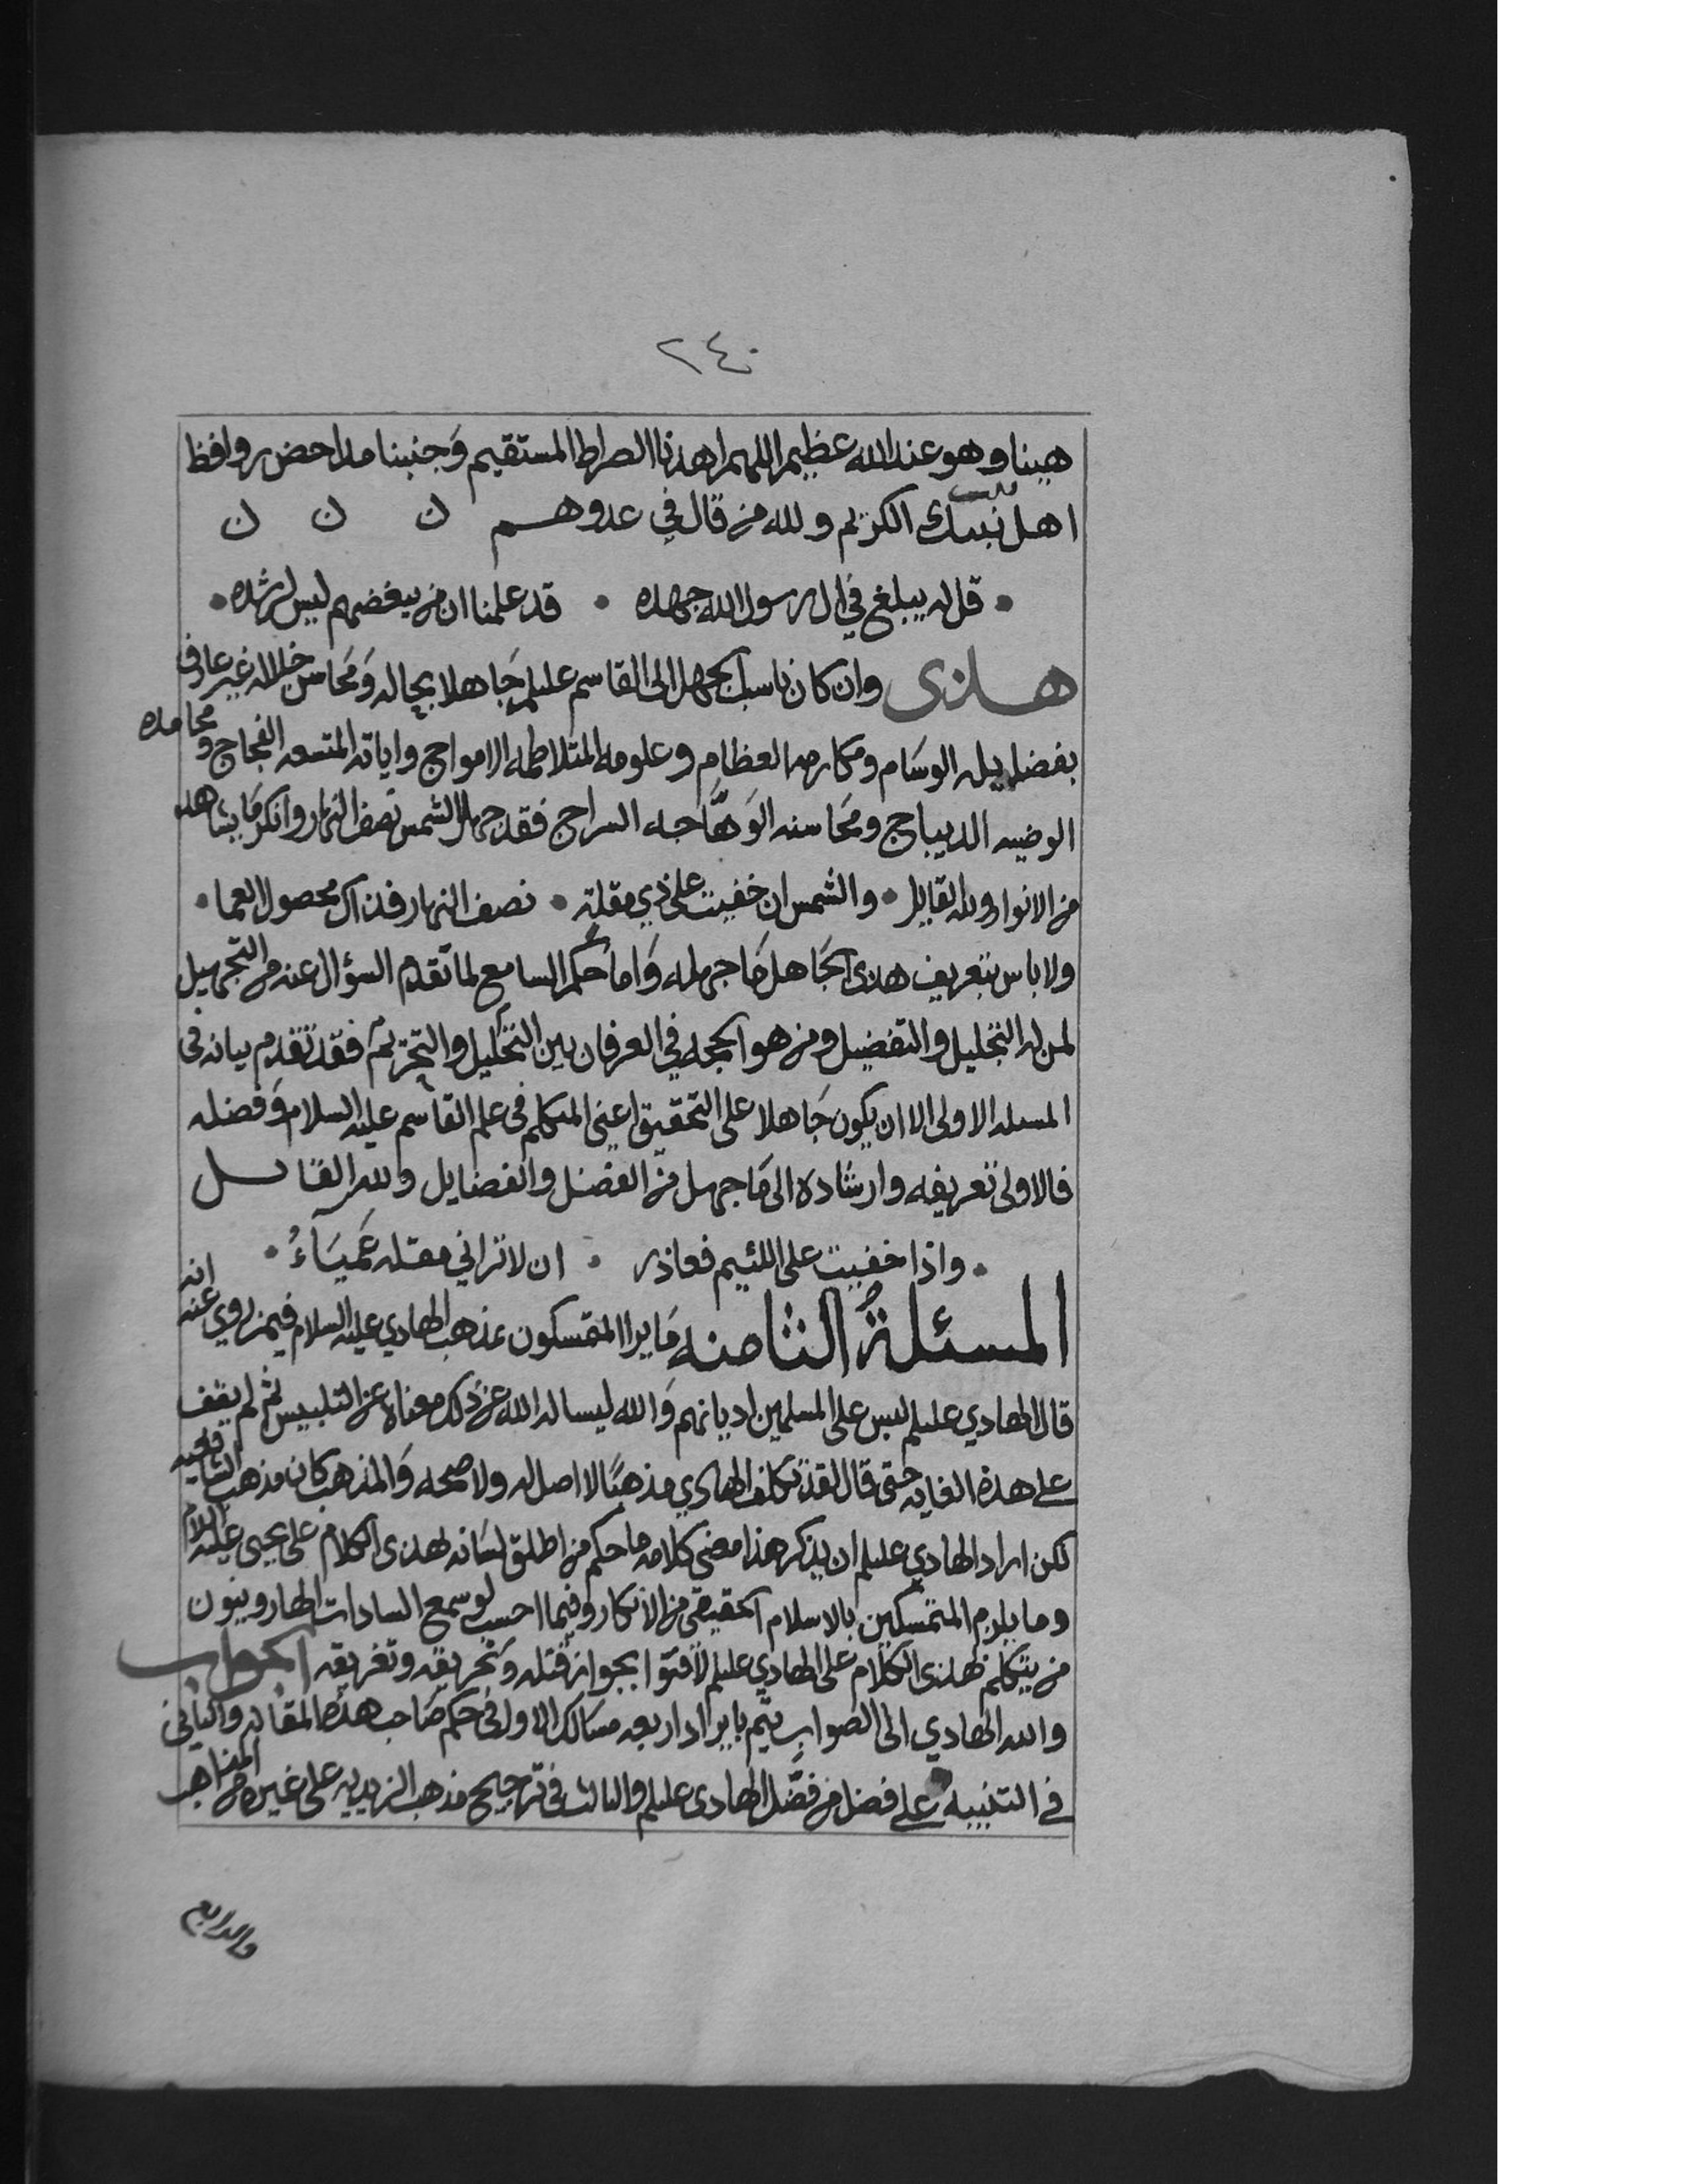 ٢٤٠
هينا وهو عند الله عظيم اللهم اهدنا الصراط المستقيم وَجنبنا مداحض روافض
اهل بيت نبيك الكريم ولله من قال في عدوهم ن ن ن
• قل له يبلغ في ال رسول الله جهده • قد علمنا ان من يبغضهم ليس لرشده •
هذى وان كان ناسب الجهل الى القاسم عليلم جَاهلا بحاله وَمحَاسن خلاله غير عارف
بفضايله الوسَام ومكارمه العظام وعلومه المتلاطمه الامواج واياته المتسعه الفجاج ومحامده
الوضيه الديباج ومحَاسنه الوَهَّاجه السراج فقد جهل الشمس نصف النهار وانكر مَا يشاهد
من الانوار ولله القايل • والشمس ان خفيت على ذي مقلة • نصف النهار فذاك محصول العما •
ولا باس بتعريف هذى الجَاهل مَا جهله وَاما حكم السامع لما تقدم السؤال عنه من التجهيل
لمن له التجليل والتفضيل ومن هو الحجه في العرفان بين التحليل والتحريم فقد تقدم بيانه في
المسئله الاولى الا ان يكون جَاهلا على التحقيق اعني المتكلم في علم القاسم عليه السلام وَفضله
فالاولى تعريفه وارشاده الى مَا جهل من الفضل والفضايل ولله القائل
• واذا خفيت على اللئيم فعاذر • ان لا تراني مقله عَميَاءُ •
المسئلةُ الثامنه مَا يرا المتمسكون بمذهب الهادي عليه السلام فيمن روي عنه انه
قال الهادي عليلم لبس على المسلمين اديانهم وَالله ليسالنه الله عن ذلك معناه عن التلبيس ثم لم يقف
على هذه الغايه حتى قال لقد تكلف الهادي مذهبًا لا اصل له ولا صحه وَالمذهب كان مذهب الشافعيه
لكن اراد الهادي عليلم ان يذكر هذا معنى كلامه ما حكم من اطلق لسَانه بهذى الكلام على يحيى عليه السلام
وما يلزم المتمسكين بالاسلام الحقيقي من الانكار وفيما احسب لو سمع السادات الهارونيون
من يتكلم بهذى الكلام على الهادي عليلم لأفتوا بجواز قتله وَتحريقه وتغريقه الجواب
والله الهادي الى الصواب يتم بايراد اربعه مسَالك الاول في حكم صَاحب هذه المقاله والثاني
في التنبيه على فضل من فضّل الهادى عليلم والثالث في ترجيح مذهب الزيديه على غيره من المذاهب
والرابع